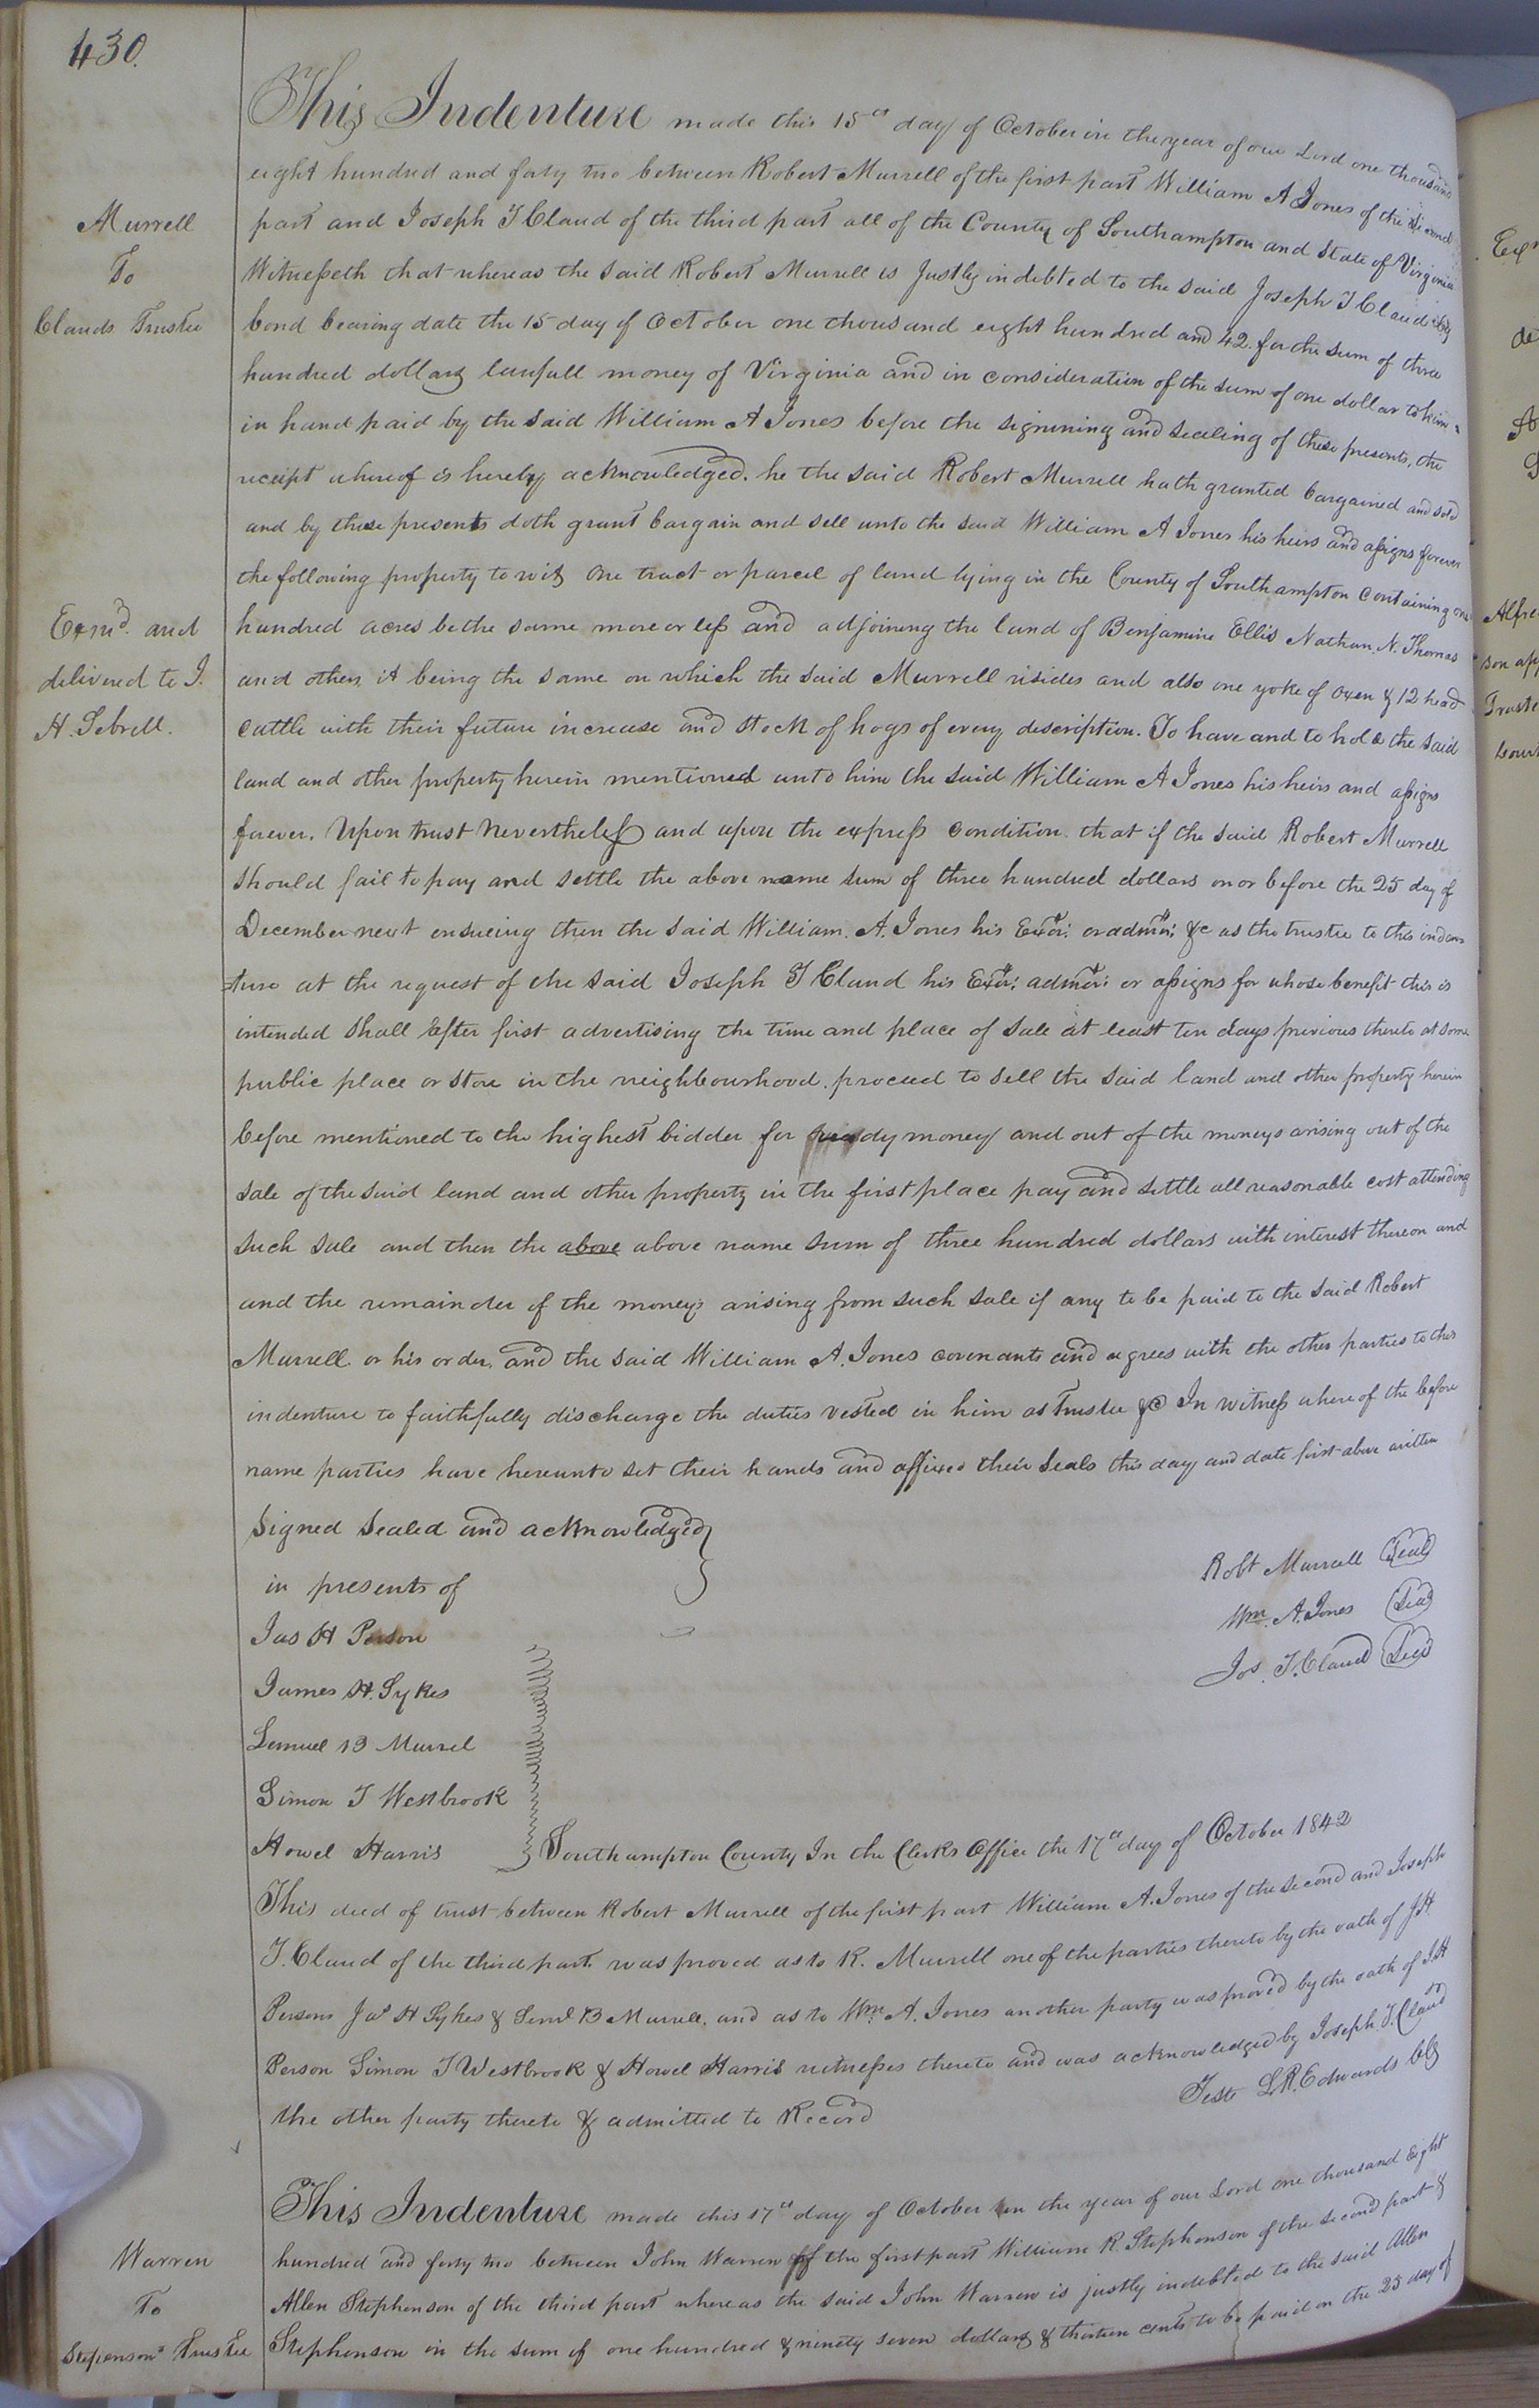 430.
This Indenture made this 15th day of October in the year of our Lord one thousand
eight hundred and forty two between Robert Murrell of the first part William A Jones of the second
Murrell
To
Clauds Trustee
part and Joseph T Claud of the third part all of the County of Southampton and State of Virginia
Witnesseth that whereas the said Robert Murrell is Justly indebted to the said Joseph T Claud by
bond bearing date the 15 day of October one thousand eight hundred and 42. for the sum of three
hundred dollars lawfull money of Virginia and in consideration of the sum of one dollar to him
in hand paid by the said William A Jones before the signining and sealing of these presents, the
receipt whereof is hereby acknowledged. he the said Robert Murrell hath granted bargained and sold
and by these presents doth grant bargain and sell unto the said William A Jones his heirs and assigns forever
the following property to wit, One tract or parcel of land lying in the County of Southampton containing one
Exmd. and
delivered to J.
H. Sebrell.
hundred acres be the same more or less and adjoining the land of Benjamine Ellis Nathan. N. Thomas
and others, it being the same on which the said Murrell risides and also one yoke of oxen & 12 head
cattle with their future increase and stock of hogs of every description. To have and to hold the said
land and other property herein mentioned unto him the said William A Jones his heirs and assigns
forever. Upon trust Nevertheless and upon the express condition that if the said Robert Murrell
should fail to pay and settle the above name sum of three hundred dollars on or before the 25 day of
December next ensueing then the said William. A. Jones his Exor: or admor: &c as the trustee to this inden
ture at the request of the said Joseph T Claud his Exor: admor: or assigns for whose benefit this is
intended shall after first advertising the time and place of sale at least ten days previous thereto at some
public place or store in the neighbourhood. proceed to sell the said land and other property herein
before mentioned to the highest bidder for ready money and out of the moneys arising out of the
sale of the said land and other property in the first place pay and settle all reasonable cost attending
such sale and then the above above name sum of three hundred dollars with interest thereon and
and the remainder of the moneys arising from such sale if any to be paid to the said Robert
Murrell or his order, and the said William A. Jones covenants and agrees with the other parties to this
indenture to faithfully discharge the duties vested in him as Trustee &c In witness whereof the before
name parties have hereunto set their hands and affixed their Seals this day and date first above written
Signed Sealed and acknowledged
in presents of
Jas H Person
James H. Sykes
Lemuel B Murrel
Simon T Westbrook
Howel Harris
Robt Murrell Seal
Wm. A. Jones Seal
Jos. T. Claud Seal
Southampton County In the Clerks Office the 17th day of October 1842
This deed of trust between Robert Murrell of the first part William A. Jones of the second and Joseph
T. Claud of the third part. was proved as to R. Murrell one of the parties thereto by the oath of J H.
Persons Jas H Sykes & Leml B Murrell. and as to Wm. A. Jones another party was proved by the oath of J H
Person Simon T Westbrook & Howel Harris witnesses thereto and was acknowledged by Joseph. T. Claud
the other party thereto & admitted to Record
Teste L.R. Edwards clk
This Indenture made this 17th day of October in the year of our Lord one thousand Eight
hundred and forty two between John Warren of the first part William R. Stephenson of the second part &
Warren
To
Stepensons Trustee
Allen Stephenson of the third part whereas the said John Warren is justly indebted to the said Allen
Stephenson in the sum of one hundred & ninety seven dollars & thirteen cents to be paid on the 25 day of